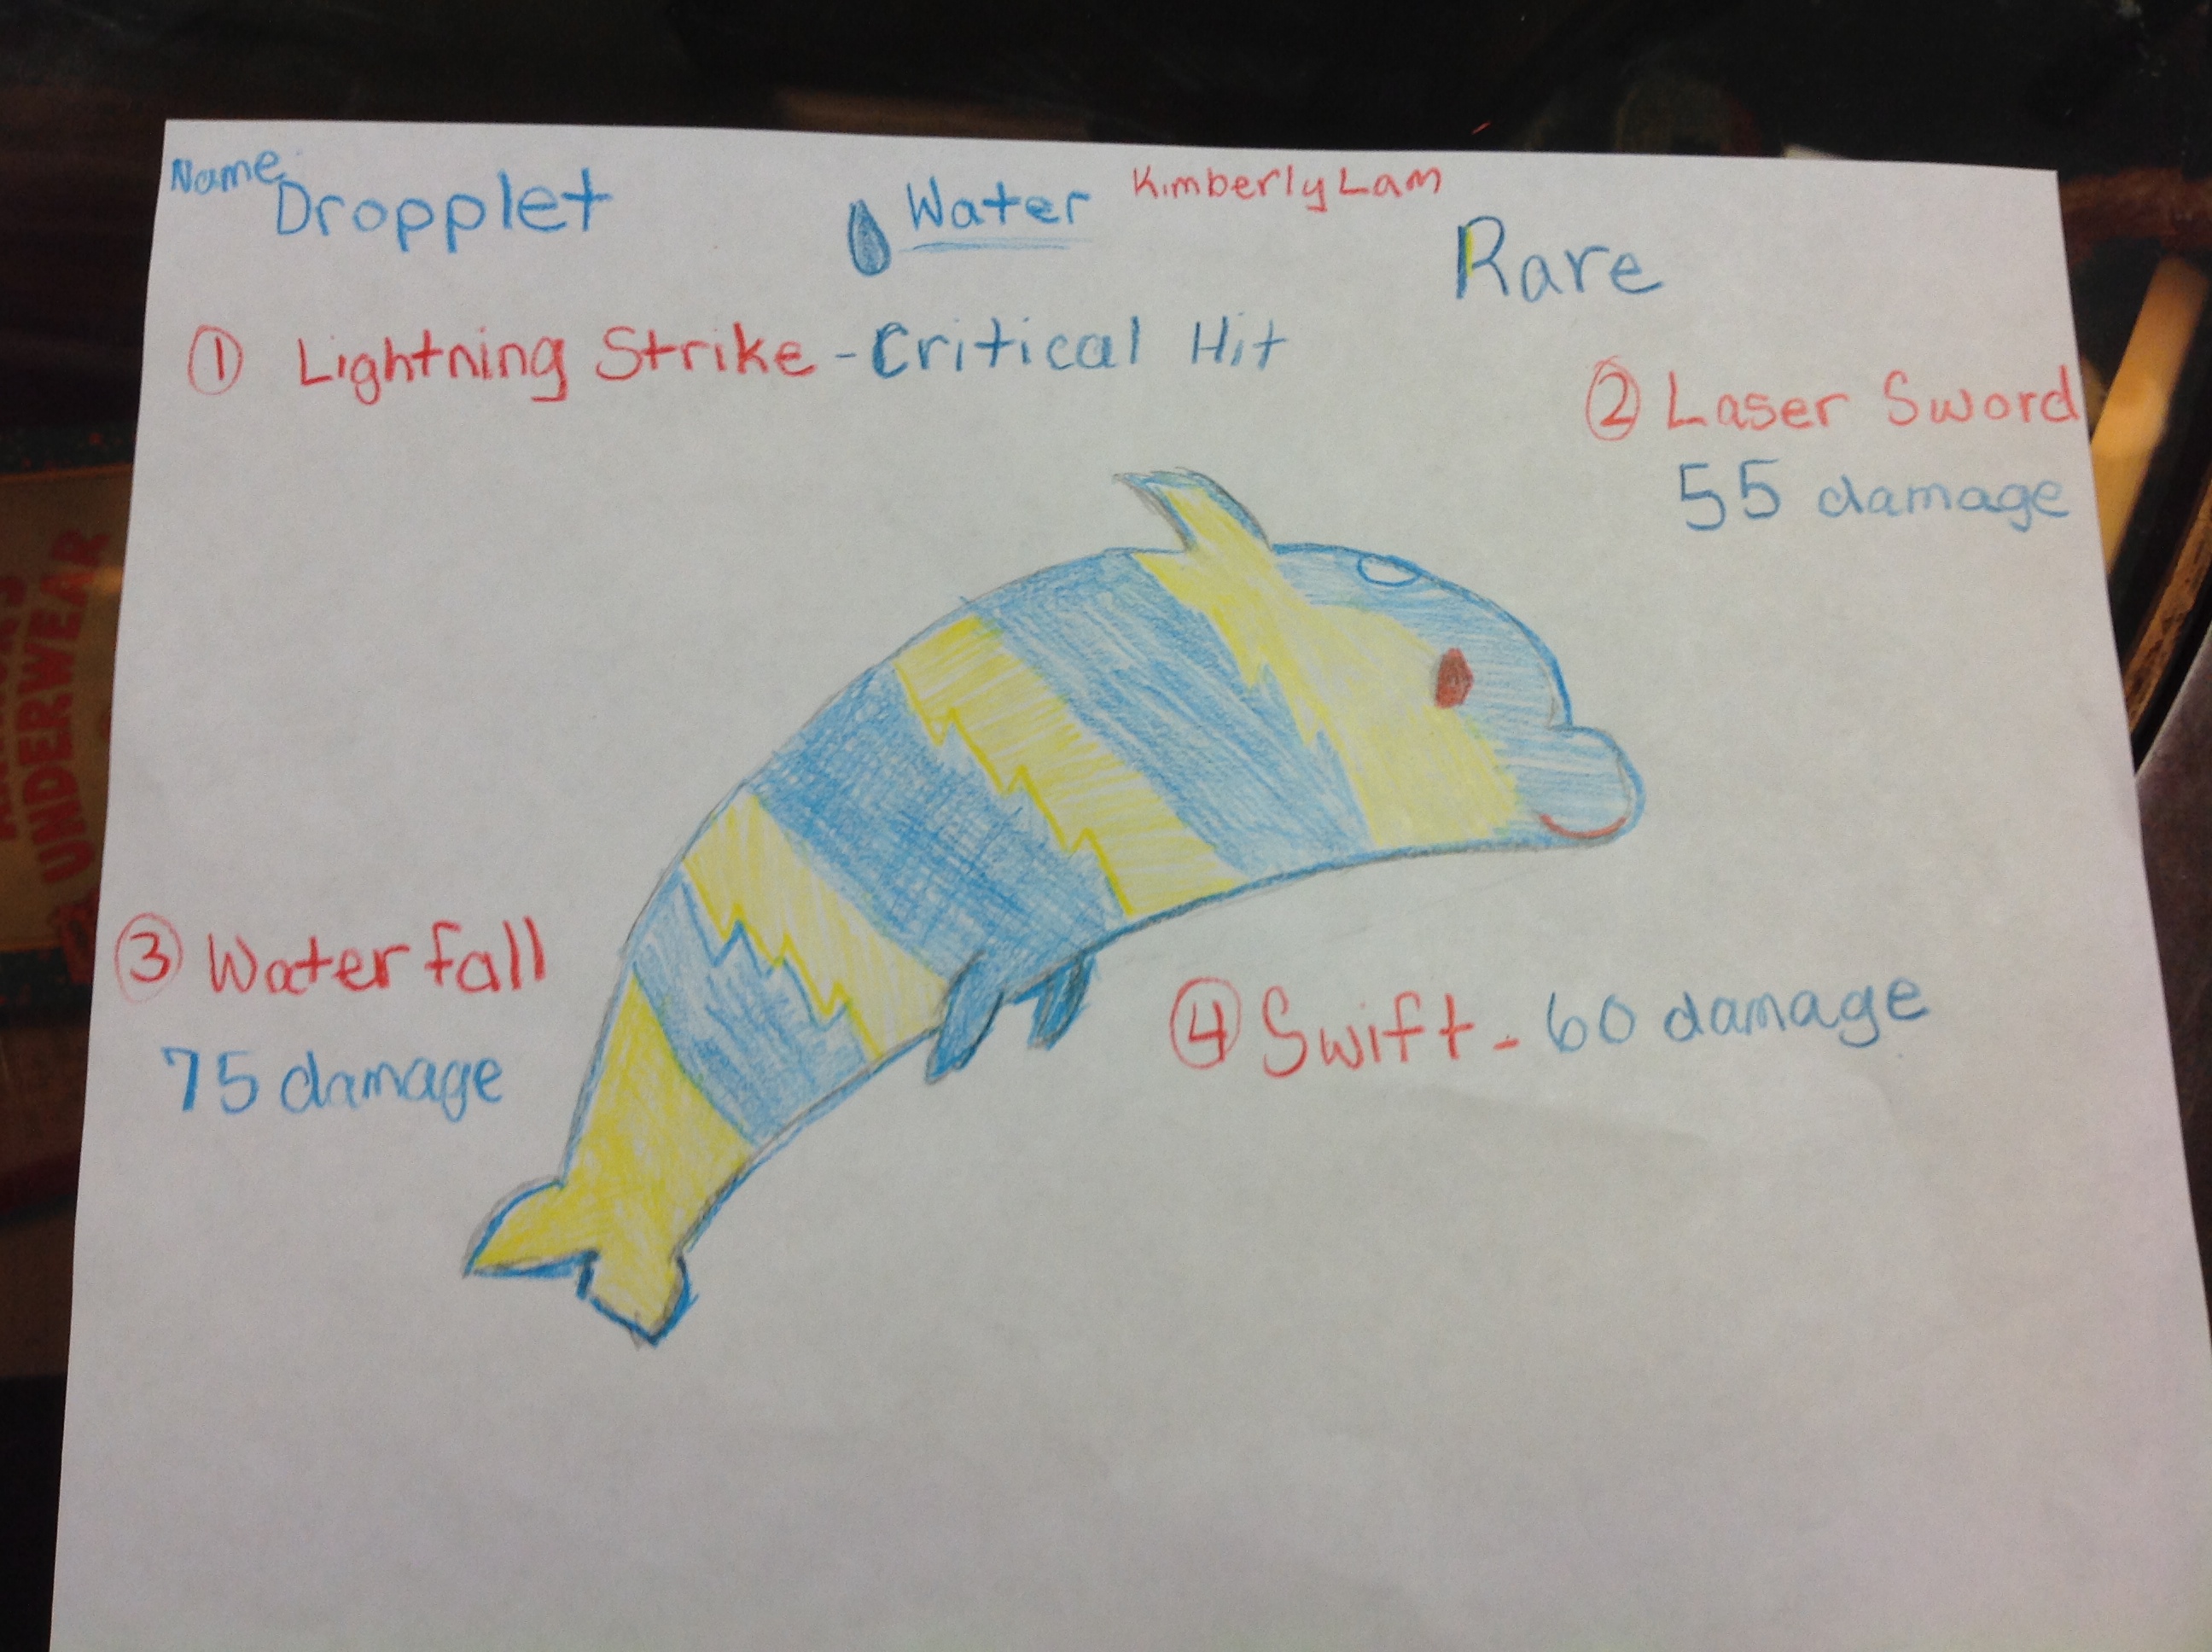 Name Dropplet
Water
Kimberly Lam
Rare
① Lightning Strike - Critical Hit
② Laser Sword
55 damage
③ Waterfall
75 damage
④ Swift - 60 damage
UNDERWEAR